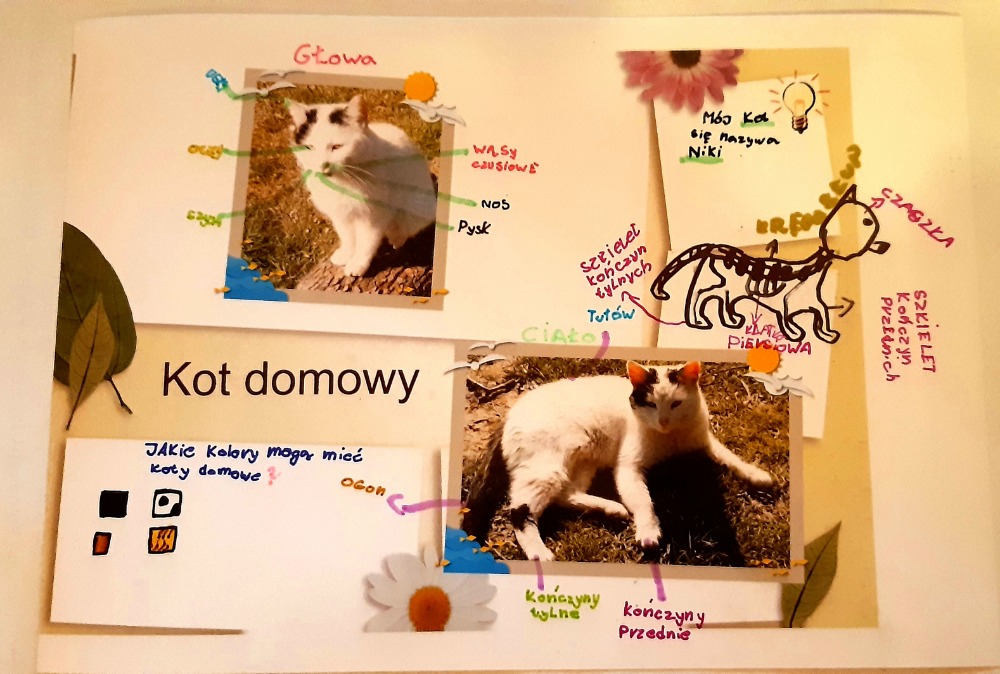 Głowa
Oczy
Szyja
WĄSY
CZUCIOWE
NOS
Pysk
Mój Kot
się nazywa
Niki
KRĘGOSŁUP
CZASZKA
SZKIELET
kończyn
tylnych
Tułów
KLATKA
PIERSIOWA
SZKIELET
KOŃCZYN
PRZEDNICH
CIAŁO
Kot domowy
JAKIE kolory mogą mieć
koty domowe?
OGON
Kończyny
tylne
KOŃCZYNY
PRZEDNIE